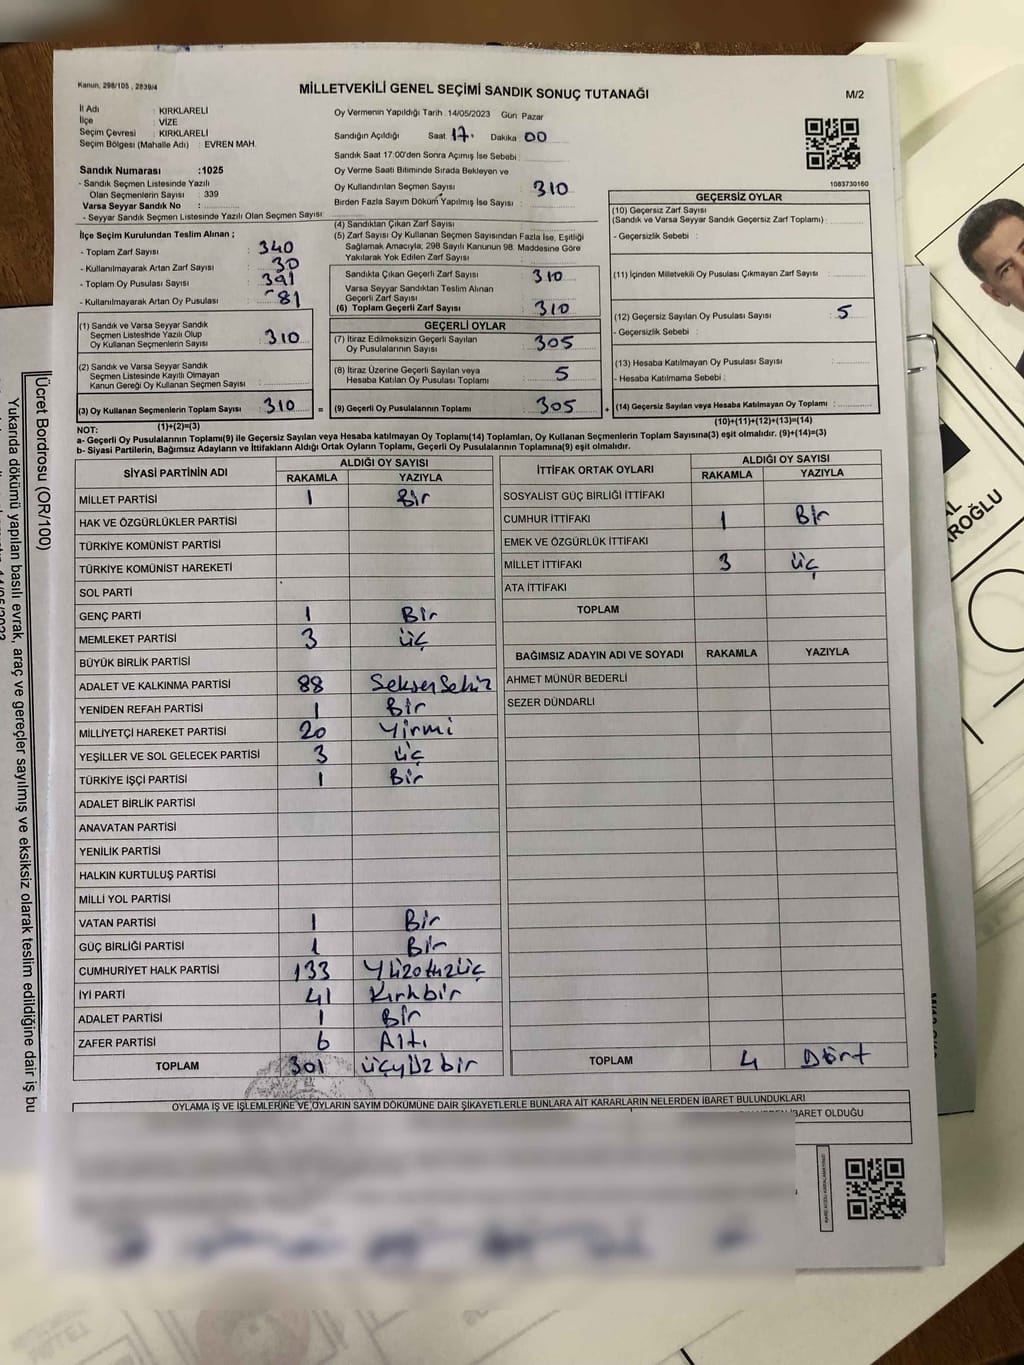 Kanun, 298/105, 2839/4
MİLLETVEKİLİ GENEL SEÇİMİ SANDIK SONUÇ TUTANAĞI
M/2
İl Adı : KIRKLARELİ
İlçe : VİZE
Seçim Çevresi : KIRKLARELİ
Seçim Bölgesi (Mahalle Adı) : EVREN MAH.
Sandık Numarası :1025
- Sandık Seçmen Listesinde Yazılı
Olan Seçmenlerin Sayısı : 339
Varsa Seyyar Sandık No :
- Seyyar Sandık Seçmen Listesinde Yazılı Olan Seçmen Sayısı:
Oy Vermenin Yapıldığı Tarih : 14/05/2023 Gün: Pazar
Sandığın Açıldığı Saat 17. Dakika 00
Sandık Saat 17:00'den Sonra Açımış İse Sebebi :
Oy Verme Saati Bitiminde Sırada Bekleyen ve
Oy Kullandırılan Seçmen Sayısı : 310
Birden Fazla Sayım Döküm Yapılmış İse Sayısı :
1083730160
İlçe Seçim Kurulundan Teslim Alınan ;
- Toplam Zarf Sayısı : 340
- Kullanılmayarak Artan Zarf Sayısı : 30
- Toplam Oy Pusulası Sayısı : 391
- Kullanılmayarak Artan Oy Pusulası : 81
(1) Sandık ve Varsa Seyyar Sandık
Seçmen Listesinde Yazılı Olup
Oy Kullanan Seçmenlerin Sayısı : 310
(2) Sandık ve Varsa Seyyar Sandık
Seçmen Listesinde Kayıtlı Olmayan
Kanun Gereği Oy Kullanan Seçmen Sayısı :
(3) Oy Kullanan Seçmenlerin Toplam Sayısı : 310
(4) Sandıktan Çıkan Zarf Sayısı :
(5) Zarf Sayısı Oy Kullanan Seçmen Sayısından Fazla İse, Eşitliği
Sağlamak Amacıyla; 298 Sayılı Kanunun 98. Maddesine Göre
Yakılarak Yok Edilen Zarf Sayısı :
Sandıkta Çıkan Geçerli Zarf Sayısı : 310
Varsa Seyyar Sandıktan Teslim Alınan
Geçerli Zarf Sayısı :
(6) Toplam Geçerli Zarf Sayısı : 310
GEÇERLİ OYLAR
(7) İtiraz Edilmeksizin Geçerli Sayılan
Oy Pusulalarının Sayısı : 305
(8) İtiraz Üzerine Geçerli Sayılan veya
Hesaba Katılan Oy Pusulası Toplamı : 5
= (9) Geçerli Oy Pusulalarının Toplamı : 305
GEÇERSİZ OYLAR
(10) Geçersiz Zarf Sayısı
(Sandık ve Varsa Seyyar Sandık Geçersiz Zarf Toplamı) :
- Geçersizlik Sebebi :
(11) İçinden Milletvekili Oy Pusulası Çıkmayan Zarf Sayısı :
(12) Geçersiz Sayılan Oy Pusulası Sayısı : 5
- Geçersizlik Sebebi :
(13) Hesaba Katılmayan Oy Pusulası Sayısı :
- Hesaba Katılmama Sebebi :
+ (14) Geçersiz Sayılan veya Hesaba Katılmayan Oy Toplamı :
NOT: (1)+(2)=(3) (10)+(11)+(12)+(13)=(14)
a- Geçerli Oy Pusulalarının Toplamı(9) ile Geçersiz Sayılan veya Hesaba katılmayan Oy Toplamı(14) Toplamları, Oy Kullanan Seçmenlerin Toplam Sayısına(3) eşit olmalıdır. (9)+(14)=(3)
b- Siyasi Partilerin, Bağımsız Adayların ve İttifakların Aldığı Oyların Toplamı, Geçerli Oy Pusulalarının Toplamına(9) eşit olmalıdır.
SİYASİ PARTİNİN ADI ALDIĞI OY SAYISI
RAKAMLA YAZIYLA
MİLLET PARTİSİ 1 Bir
HAK VE ÖZGÜRLÜKLER PARTİSİ
TÜRKİYE KOMÜNİST PARTİSİ
TÜRKİYE KOMÜNİST HAREKETİ
SOL PARTİ
GENÇ PARTİ 1 Bir
MEMLEKET PARTİSİ 3 üç
BÜYÜK BİRLİK PARTİSİ
ADALET VE KALKINMA PARTİSİ 88 SeksenSekiz
YENİDEN REFAH PARTİSİ 1 Bir
MİLLİYETÇİ HAREKET PARTİSİ 20 Yirmi
YEŞİLLER VE SOL GELECEK PARTİSİ 3 üç
TÜRKİYE İŞÇİ PARTİSİ 1 Bir
ADALET BİRLİK PARTİSİ
ANAVATAN PARTİSİ
YENİLİK PARTİSİ
HALKIN KURTULUŞ PARTİSİ
MİLLİ YOL PARTİSİ
VATAN PARTİSİ 1 Bir
GÜÇ BİRLİĞİ PARTİSİ 1 Bir
CUMHURİYET HALK PARTİSİ 133 Yüzotuzüç
İYİ PARTİ 41 Kırkbir
ADALET PARTİSİ 1 Bir
ZAFER PARTİSİ 6 Altı
TOPLAM 301 üçyüzbir
İTTİFAK ORTAK OYLARI ALDIĞI OY SAYISI
RAKAMLA YAZIYLA
SOSYALİST GÜÇ BİRLİĞİ İTTİFAKI
CUMHUR İTTİFAKI 1 Bir
EMEK VE ÖZGÜRLÜK İTTİFAKI
MİLLET İTTİFAKI 3 üç
ATA İTTİFAKI
TOPLAM
BAĞIMSIZ ADAYIN ADI VE SOYADI RAKAMLA YAZIYLA
AHMET MÜNÜR BEDERLİ
SEZER DÜNDARLI
TOPLAM 4 Dört
OYLAMA İŞ VE İŞLEMLERİNE VE OYLARIN SAYIM DÖKÜMÜNE DAİR ŞİKAYETLERLE BUNLARA AİT KARARLARIN NELERDEN İBARET BULUNDUKLARI
İBARET OLDUĞU
Ücret Bordrosu (OR/100)
Yukarıda dökümü yapılan basılı evrak, araç ve gereçler sayılmış ve eksiksiz olarak teslim edildiğine dair iş bu
14/05/2023
AL
AROĞLU